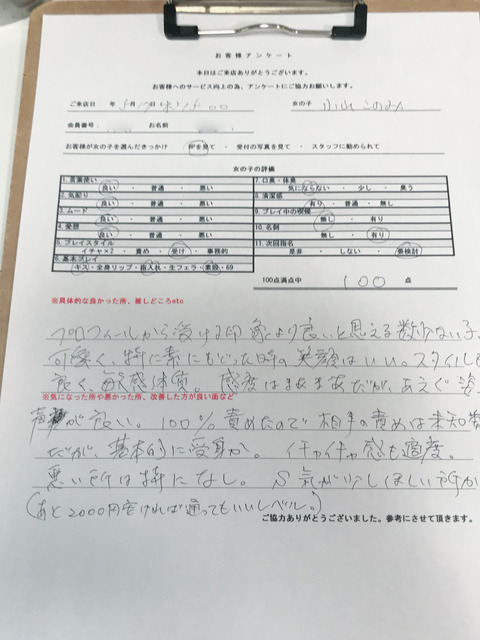 お客様アンケート
本日はご来店ありがとうございます。
お客様へのサービス向上の為、アンケートにご協力お願いします。
ご来店日 年 月 00 女の子 小山 このみ
会員番号: お名前
お客様が女の子を選んだきっかけ HPを見て ・ 受付の写真を見て ・ スタッフに勧められて
女の子の評価
1. 言葉使い 良い ・ 普通 ・ 悪い 7. 口臭・体臭 気にならない ・ 少し ・ 臭う
2. 気配り 良い ・ 普通 ・ 悪い 8. 清潔感 有り ・ 普通 ・ 無し
3. ムード 良い ・ 普通 ・ 悪い 9. プレイ中の喫煙 無し ・ 有り
4. 愛想 良い ・ 普通 ・ 悪い 10. 名刺 無し ・ 有り
5. プレイスタイル イチャ×2 ・ 責め ・ 受け ・ 事務的 11. 次回指名 是非 ・ しない ・ 要検討
6. 基本プレイ キス・全身リップ・指入れ・生フェラ・素股・69
100点満点中 100 点
※具体的な良かった所、推しどころetc
プロフィールから受ける印象より良いと思える数少ない子。
可愛く、特に素にもどった時の笑顔はいい。スタイルも
良く、敏感体質。感度はまあまあだが、あえぐ姿、
※気になった所や悪かった所、改善した方が良い面など
声が良い。100%責めたので相手の責めは未知数
だが、基本的に受身か。イチャイチャ感も適度。
悪い所は特になし。S気が少しほしい所か
(あと2000円安ければ通ってもいいレベル。)
ご協力ありがとうございました。参考にさせて頂きます。